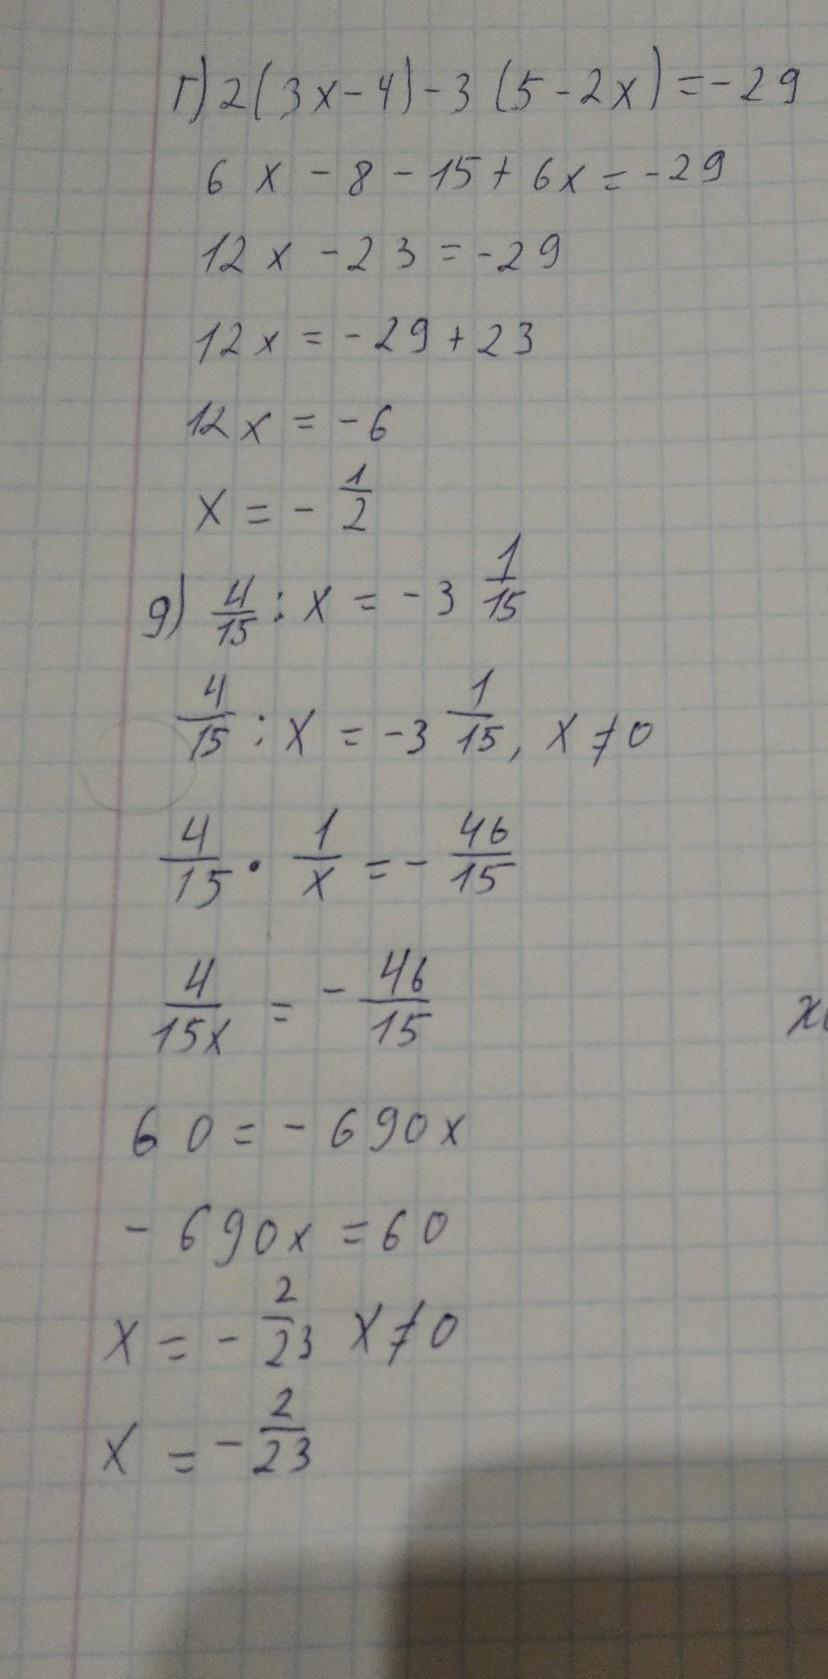 г) 2(3x-4)-3(5-2x)=-29
6x-8-15+6x=-29
12x-23=-29
12x=-29+23
12x=-6
x=-1/2
g) 4/15:x=-3 1/15
4/15:x=-3 1/15, x≠0
4/15·1/x=-46/15
4/15x=-46/15
60=-690x
-690x=60
x=-2/23 x≠0
x=-2/23